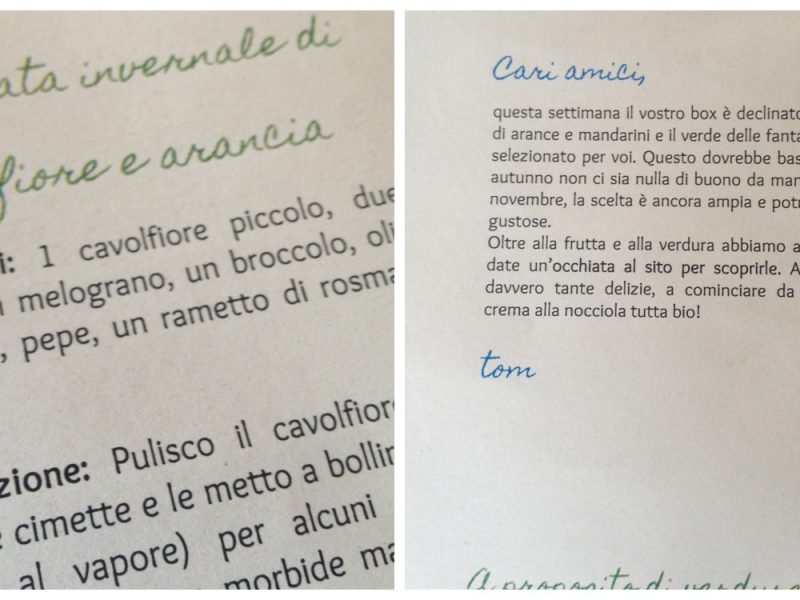 ata invernale di
fiore e arancia
i: 1 cavolfiore piccolo, due
melograno, un broccolo, oli
, pepe, un rametto di rosma
zione: Pulisco il cavolfiore
e cimette e le metto a bollir
al vapore) per alcuni
morbide ma
Cari amici,
questa settimana il vostro box è declinato
di arance e mandarini e il verde delle fanta
selezionato per voi. Questo dovrebbe bas
autunno non ci sia nulla di buono da man
novembre, la scelta è ancora ampia e potr
gustose.
Oltre alla frutta e alla verdura abbiamo a
date un'occhiata al sito per scoprirle. A
davvero tante delizie, a cominciare da
crema alla nocciola tutta bio!
tom
A proposito di verdura